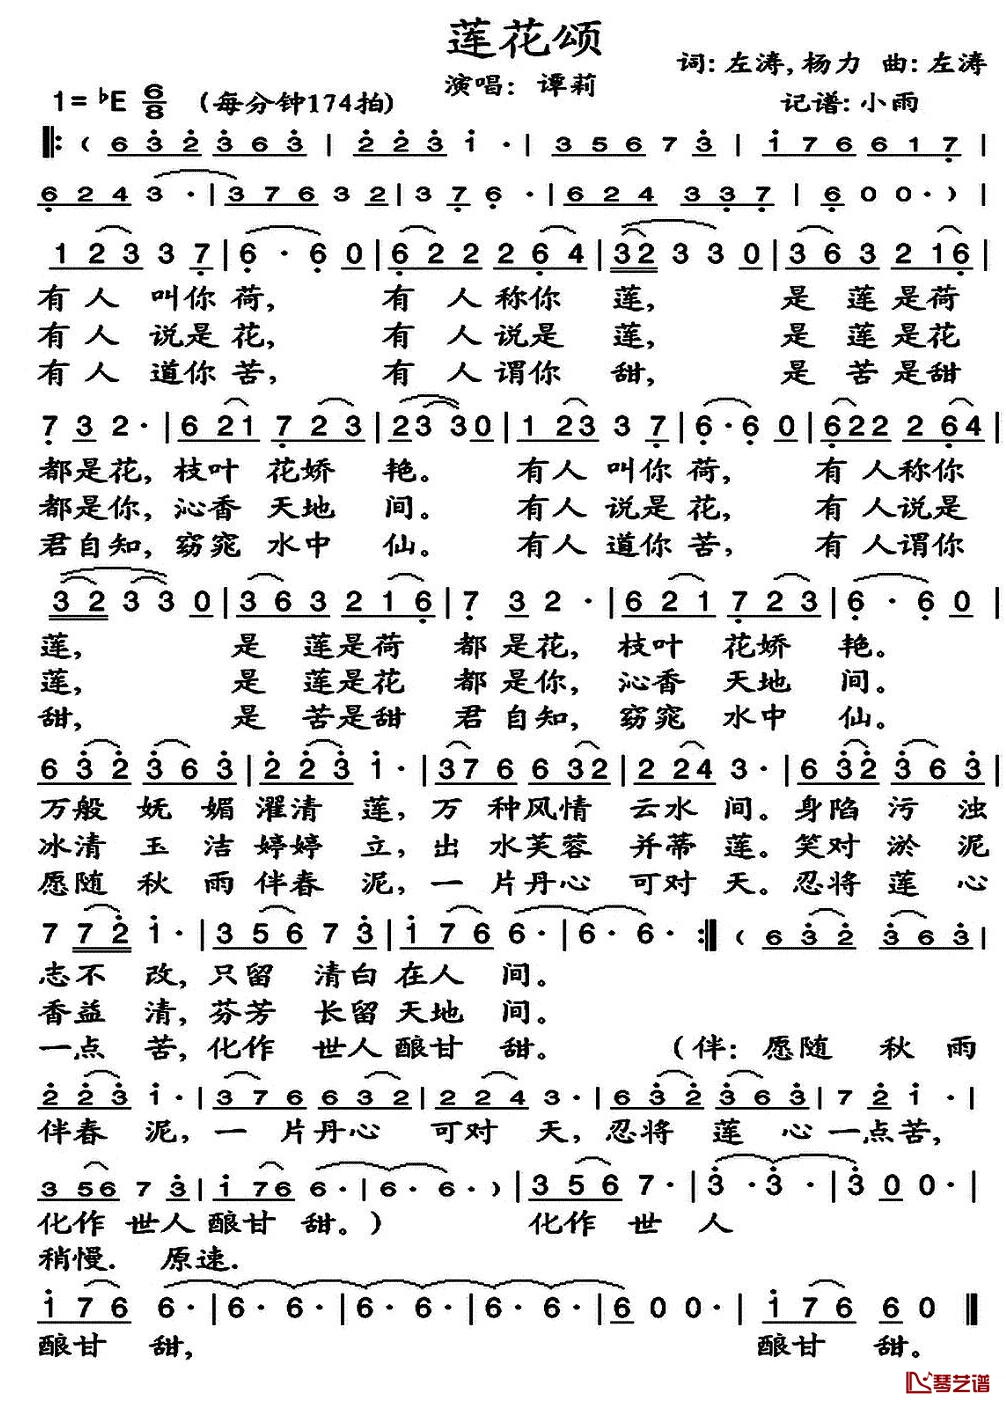 莲花颂
词: 左涛, 杨力 曲: 左涛
演唱: 谭莉
1= ♭E 6/8 (每分钟174拍)
记谱: 小雨
有 人 叫你 荷, 有 人 称你 莲, 是 莲 是荷
有 人 说是 花, 有 人 说是 莲, 是 莲 是花
有 人 道你 苦, 有 人 谓你 甜, 是 苦 是甜
都是花, 枝叶 花娇 艳。 有人 叫你 荷, 有 人称你
都是你, 沁香 天地 间。 有人 说是 花, 有 人说是
君自知, 窈窕 水中 仙。 有人 道你 苦, 有 人谓你
莲, 是 莲是荷 都 是花, 枝叶 花娇 艳。
莲, 是 莲是花 都 是你, 沁香 天地 间。
甜, 是 苦是甜 君 自知, 窈窕 水中 仙。
万般 妩 媚 濯清 莲, 万 种风情 云水 间。身陷 污 浊
冰清 玉 洁 婷婷 立, 出 水芙蓉 并蒂 莲。笑对 淤 泥
愿随 秋 雨 伴春 泥, 一 片丹心 可对 天。忍将 莲 心
志不 改, 只留 清白 在人 间。
香益 清, 芬芳 长留 天地 间。
一点 苦, 化作 世人 酿甘 甜。 (伴: 愿随 秋 雨
伴春 泥, 一 片丹心 可对 天, 忍将 莲 心 一点苦,
化作 世人 酿甘 甜。) 化作 世 人
稍慢. 原速.
酿甘 甜, 酿甘 甜。
琴艺谱